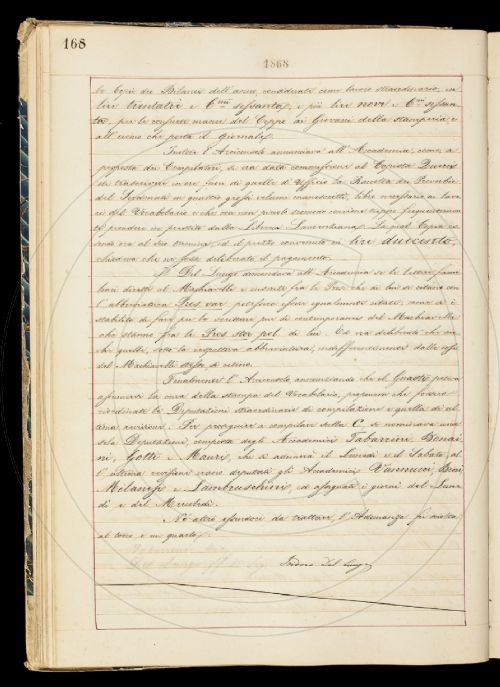 168
1868
le Copie dei Bilanci dell'anno, considerate come lavoro straordinario, in
lire trentatré e C.mi sessanta, e più lire nove e C.mi sessan-
ta, per le consuete mance del Ceppo ai Giovani della stamperia, e
all'uomo che porta il giornale.
Inoltre l'Arciconsolo annunziava all'Accademia, come, a
proposta dei Compilatori, si era data commissione al Copista
di trascrivere in ore fuori di quelle d'Ufficio la Raccolta dei Proverbi
del Serdonati in quattro grossi volumi manoscritti, libro necessario ai lavo-
ri del Vocabolario e che ora con piccolo incomodo conviene troppo frequentemente
prendere in prestito dalla Libreria Laurenziana. La qual Copia es-
sendo ora al suo termine, ed il prezzo convenuto in lire duecento,
chiedeva che ne fosse deliberato il pagamento.
Il Del Lungo domandava all'Accademia se le lettere fami-
liari dirette al Machiavelli e inserite fra le Pros. che di lui si citano con
l'abbreviatura Pros. var. potessero essere egualmente citate, come si è
stabilito di fare per le scritture pur di contemporanei del Machiavelli
che stanno fra le Pros. stor. pol. di lui. Ed era deliberato che an-
che quelle, sotto la respettiva abbreviatura, indifferentemente dalle cose
del Machiavelli stesso si citino.
Finalmente l'Arciconsolo annunziando che il Guasti poteva
assumere la cura della stampa del Vocabolario, proponeva che fossero
riordinate le Deputazioni straordinarie di compilazione e quella di ul-
tima revisione. Per proseguire a compilare della C. si nominava una
sola Deputazione, composta degli Accademici Tabarrini, Bindi,
Gotti e Mauri, che si adunerà il Lunedì e il Sabato; al-
l'ultima revisione erano deputati gli Accademici Vannucci,
Milanesi e Lambruschini, ed assegnati i giorni del Lune-
dì e del Mercoledì.
Né altro essendovi da trattare, l'Adunanza fu sciolta
al tocco e un quarto.
Isidoro Del Lungo